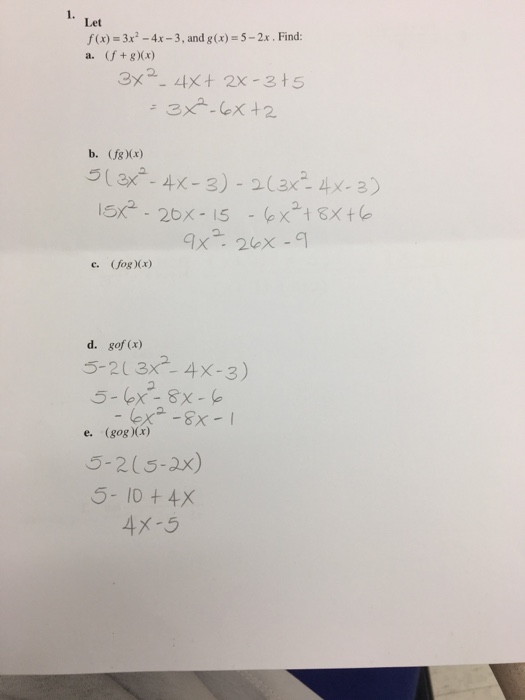 1. Let
f(x) = 3x² − 4x − 3, and g(x) = 5 − 2x. Find:
a. (f + g)(x)
3x² - 4x + 2x - 3 + 5
= 3x² - 6x + 2
b. (fg)(x)
5(3x² - 4x - 3) - 2(3x² - 4x - 3)
15x² - 20x - 15 - 6x² + 8x + 6
9x² - 26x - 9
c. (fog)(x)
d. gof(x)
5-2(3x² - 4x - 3)
5 - 6x² - 8x - 6
- 6x² - 8x - 1
e. (gog)(x)
5-2(5-2x)
5 - 10 + 4x
4x - 5